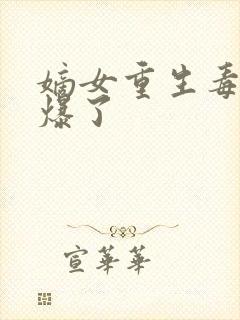 嫡女重生毒
爆了
宣華華